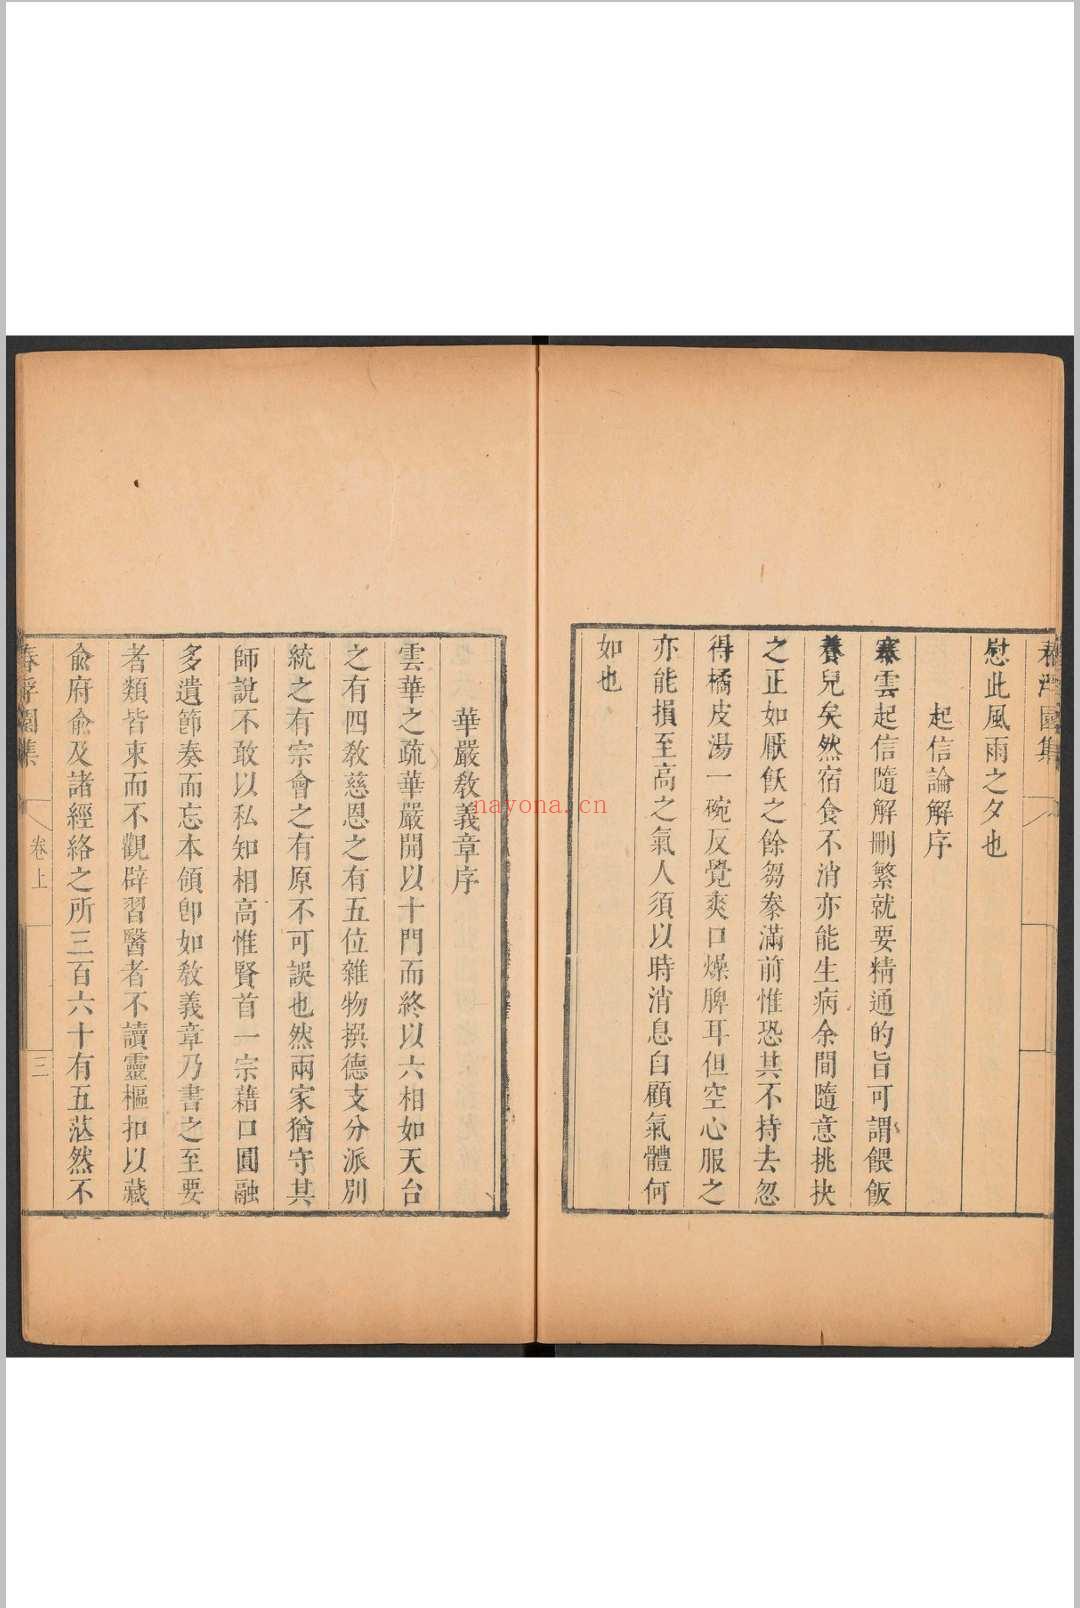 慰此風雨之夕也
起信論解序
寒雲起信隨解刪繁就要精通的旨可謂餵飯
養兒矣然宿食不消亦能生病余間隨意挑抉
之正如厭飫之餘芻豢滿前惟恐其不持去忽
得橘皮湯一碗反覺爽口燥脾耳但空心服之
亦能損至高之氣人須以時消息自顧氣體何
如也
華嚴教義章序
雲華之疏華嚴開以十門而終以六相如天台
之有四教慈恩之有五位雜物撰德支分派別
統之有宗會之有原不可誤也然兩家猶守其
師說不敢以私知相高惟賢首一宗藉口圓融
多遺節奏而忘本領卽如教義章乃書之至要
者類皆束而不觀辟習醫者不讀靈樞扣以藏
兪府兪及諸經絡之所三百六十有五茫然不
春浮園集
卷上
三
nayona.cn